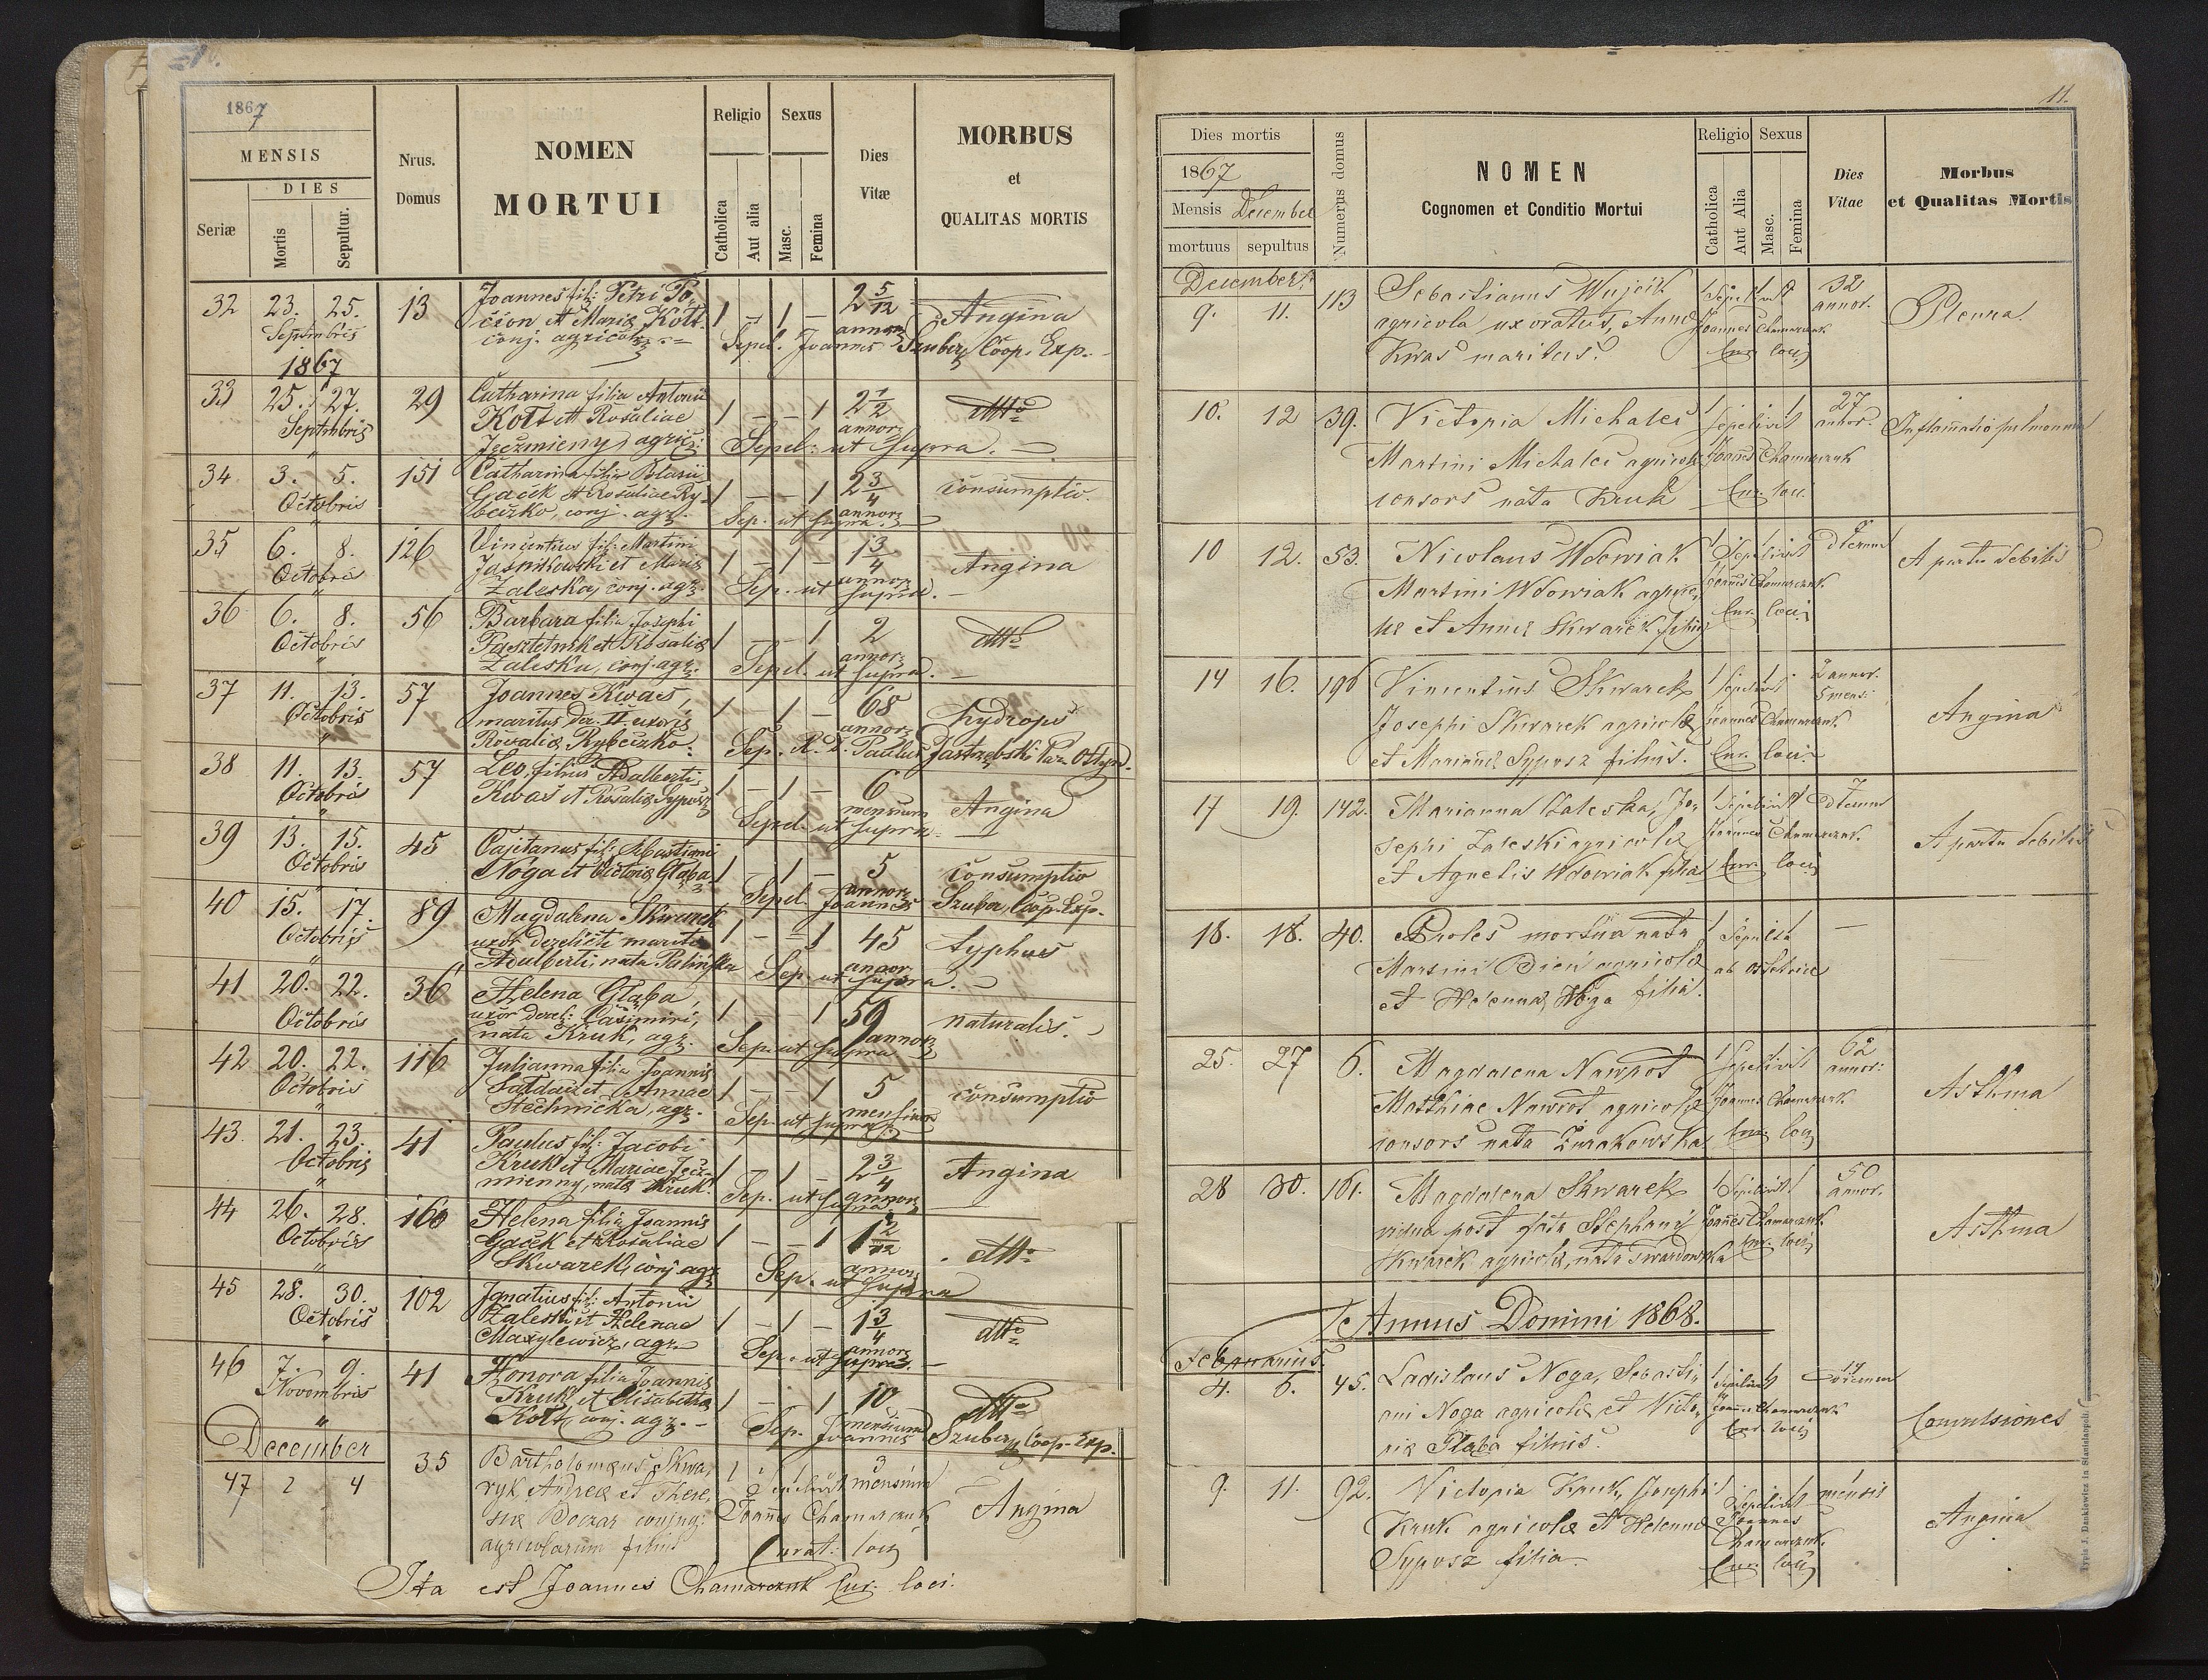 1867
MENSIS
DIES
Seriæ
Mortis
Sepultur.
Nrus.
Domus
NOMEN
MORTUI
Religio
Sexus
Catholica
Aut alia
Masc.
Femina
Dies
Vitæ
MORBUS
et
QUALITAS MORTIS
32 23. 25. 13 Joannes fil: Petri
et Mariæ Kott 1 – 1 – 2 5/12 Angina
Septembris conj. agricol. annor
Sepel. Joannes Szuber Coop. Exp.
1867
33 25. 27. 29 Catharina filia Antonii
Kott et Rosaliae 1 – – 1 2 1/2 dtto
Septembris Jęczmienny, agric: annor
Sepel: ut supra. –
34 3. 5. 151 Catharina filia Blasii
Gacek et Rosaliae Ry- 1 – – 1 2 3/4 consumptio.
Octobris beczko, conj. agr. annor
Sep. ut supra.
35 6. 8. 126 Vincentius fil: Martini
Jasnikowski et Mariæ 1 – 1 – 1 3/4 Angina
Octobris Zaleska, conj. agr. annor
Sep. ut supra. –
36 6. 8. 56 Barbara filia Josephi
Pasztetnik et Rosaliæ 1 – – 1 2 dtto
Octobris Zaleska, conj. agr. annor
Sepel. ut supra. –
37 11. 13. 57 Joannes Kwas,
maritus der. II. uxoris 1 – 1 – 68 hydrops
Octobris Rosaliæ Rybeczko. annor
Sep. R. D. Paulus Jastrzębski Par.
38 11. 13. 57 Leo, filius Adalberti
Octobris Kwas et Rosaliæ Syposz 1 – 1 – 6 mensium Angina
Sepel. ut supra
39 13. 15. 45 Cajetanus fil: Sebastiani
Octobris Noga et Victoriæ Głąba 1 1 – 5 annor consumptio
Sepel. Joannes Szuber, Coop. Exp.
40 15. 17. 89 Magdalena Skwarek
Octobris uxor derelicti mariti 1 – – 1 45 typhus
Adalberti, nata Palińska annor
Sep. ut supra. –
41 20. 22. 36 Helena Głąba,
uxor derel: Casimiri, 1 – – 1 59 naturalis.
Octobris nata Kruk, agr. annor
Sep. ut supra
42 20. 22. 116 Julianna filia Joannis
Octobris et Annae 1 – 1 5 consumptio
Stechnicka, agr. mensium
Sep. ut supra.
43. 21. 23. 41 Paulus fil: Jacobi
Octobris Kruk et Mariae Jęcz- 1 – 1 – 2 3/4 Angina
mienny, nata Kruk. annor
Sep. ut supra
44 26. 28. 166 Helena filia Joannis
Octobris Gacek et Rosaliae 1 – – 1 1 2/12 dtto
Skwarek, conj. agr annor
Sep. ut supra
45 28. 30. 102 Ignatius fil: Antonii
Octobris Zaleski et Helenae 1 – 1 – 1 3/4 dtto
Maxylewicz, agr. annor
Sep. ut supra. –
46 7. 9. 41 Honora filia Joannis
Novembris Kruk et Elisabethæ 1 – 1 10 dtto
Kott, conj. agr. – mensium
Sep. Joannes Szuber Coop. Exp.
December
47 2 4 35 Bartholomæus Skwa-
ryk Andreæ et There- 1 1 3 mensium
siæ Boczar conjug: Joannes Chamarczuk Angina
agricolarum filius Curat: loci
Ita est Joannes Chamarczuk Cur. loci.
11.
Dies mortis
1867
Mensis December
mortuus sepultus
Numerus domus
NOMEN
Cognomen et Conditio Mortui
Religio Sexus
Catholica
Aut Alia
Masc.
Femina
Dies
Vitae
Morbus
et Qualitas Mortis
December
9. 11. 113 Sebastianus Wujcik 1 Sepelivit 1 32 annor.
agricola uxoratus, Annæ Joannes Chamarczuk Pleura.
Kwas maritus. Cur loci
10. 12 39. Victoria Michalec 1 sepelivit 1 27 annor. Inflamatio pulmonum
Martini Michalec agricolæ Joannes Chamarczuk
consors nata Kruk Cur. loci.
10 12. 53. Nicolaus Wdowiak 1 Sepelivit dierum A partu debilis
Martini Wdowiak agrico- Joannes Chamarczuk.
læ et Annæ Skwarek filius Cur. loci
14 16. 196 Vincentius Skwarek 1 sepelivit 1 2 annor. 5 mens:
Josephi Skwarek agricolæ Joannes Chamarczuk Angina
et Mariannæ Syposz filius. Cur. loci
17 19. 142. Marianna Zaleska, Jo- 1 Sepelivit 1 7 dierum
sephi Zaleski agricolæ Joannes Chamarczuk. A partu debilis
et Agnetis Wdowiak filia Cur. loci
18. 18. 40. Proles mortua nata 1 Sepulta 1 —
Martini Bień agricolæ ab obstetrice
et Helennæ Noga filia.
25. 27 6. Magdalena Nawrot 1 Sepelivit 1 62 annor:
Matthiae Nawrot agricolæ Joannes Chamarczuk Asthma
consors nata Żurakowska Cur. loci
28 30. 161. Magdalena Skwarek 1 Sepelivit 1 50 annor.
vidua post fata Stephani Joannes Chamarczuk Asthma
Skwarek agricolæ, nata Twardowska Cur. loci
Annus Domini 1868.
Februarius.
4. 6. 45. Ladislaus Noga, Sebasti- 1 Sepelivit 1 14 dierum
ani Noga agricolæ et Victo- Joannes Chamarczuk Convulsiones
riæ Głąba filius. Cur. loci
9. 11. 92. Victoria Kruk, Josephi 1 Sepelivit 1 mensis
Kruk agricolæ et Helennæ Joannes Chamarczuk Angina
Syposz filia. Cur loci
Typis J. Dankiewicz in Stanislaopoli.